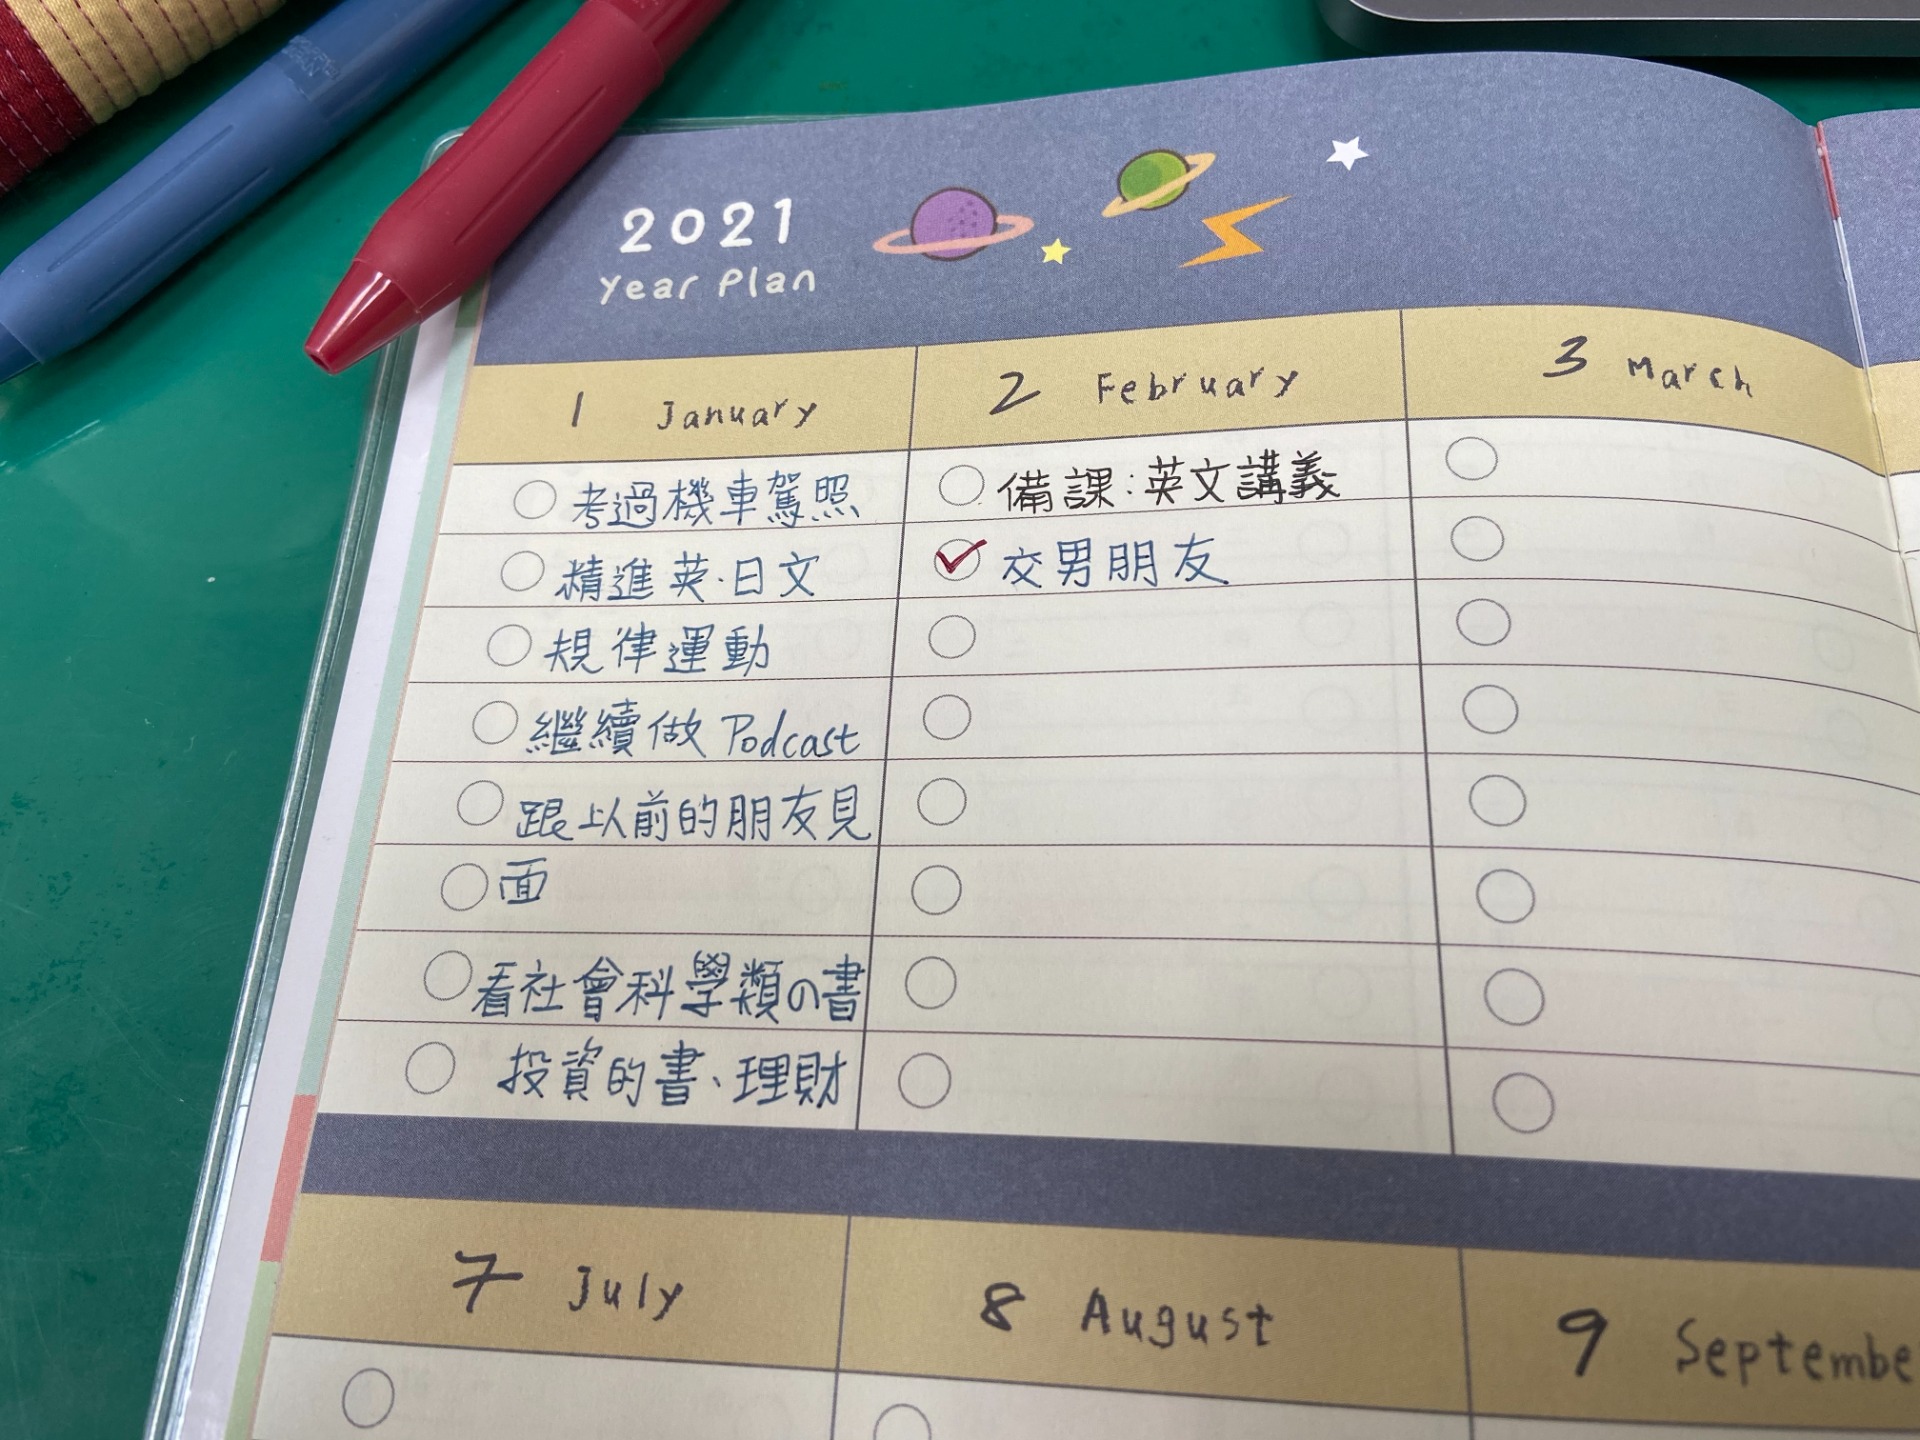 2021
Year Plan
1 January
考過機車駕照
精進英.日文
規律運動
繼續做 Podcast
跟以前的朋友見
面
看社會科學類の書
投資的書、理財
2 February
備課:英文講義
交男朋友
3 March
7 July
8 August
9 Septembe